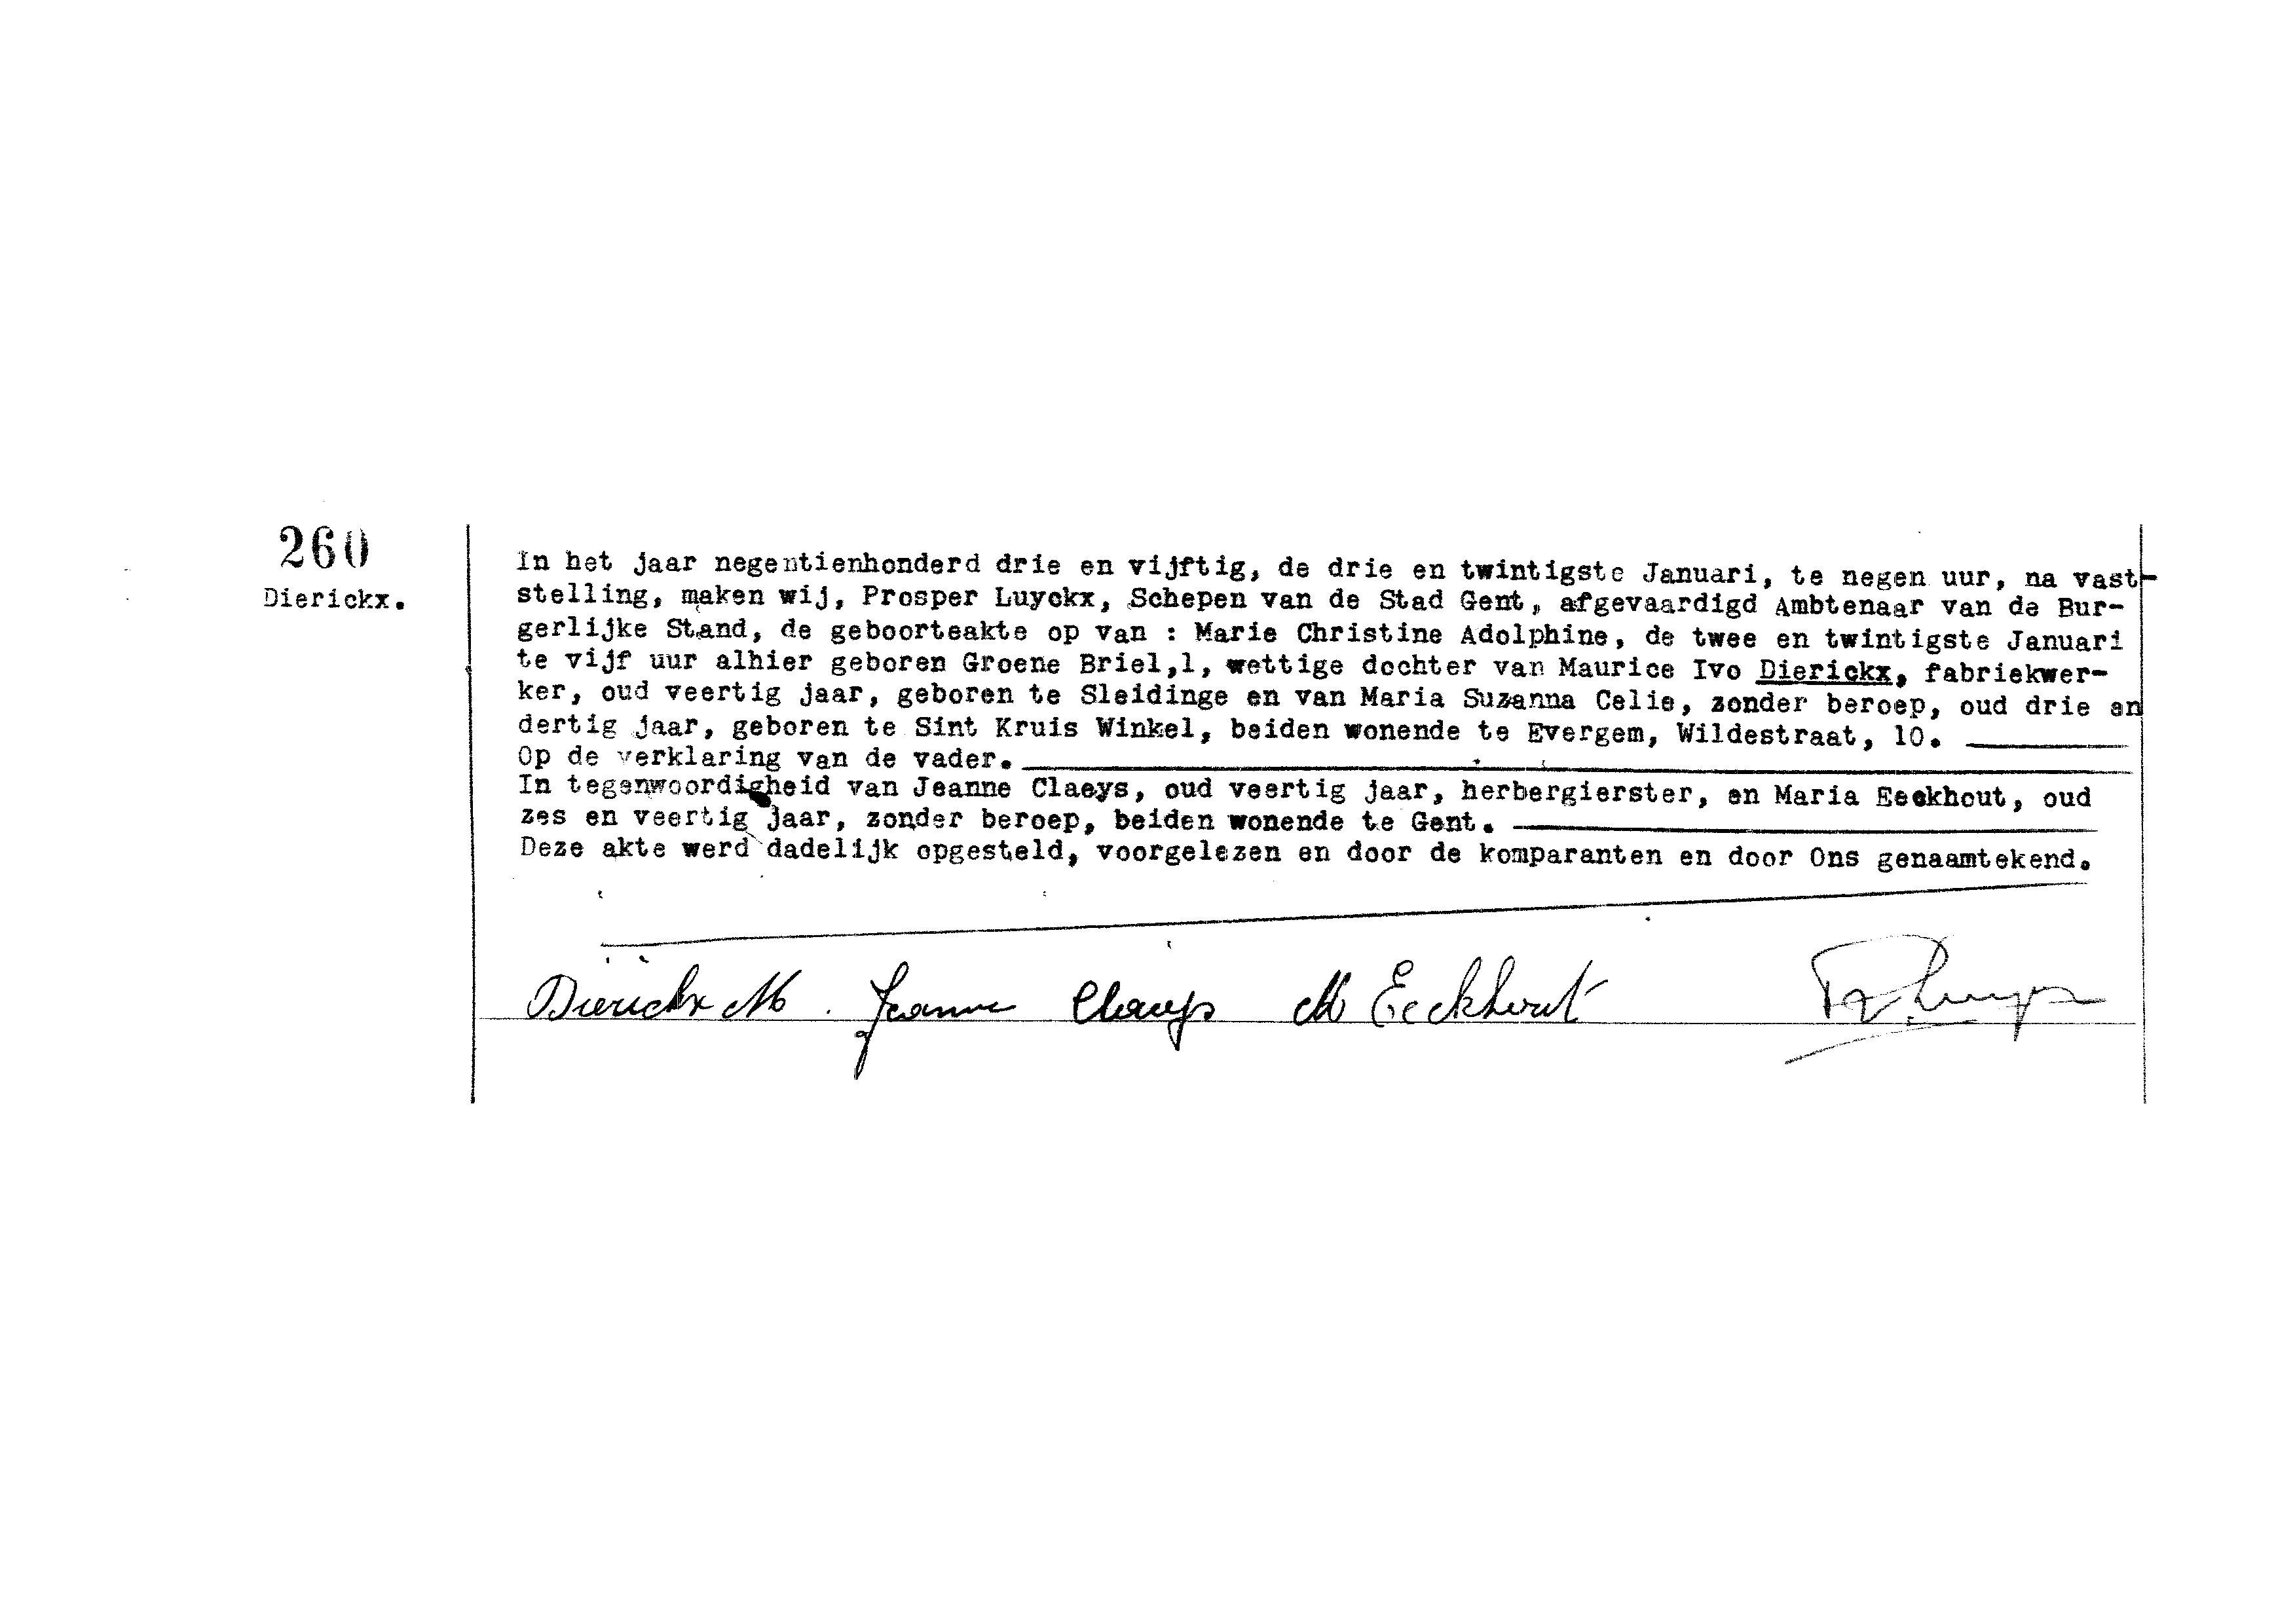 260
Dierickx.
In het jaar negentienhonderd drie en vijftig, de drie en twintigste Januari, te negen uur, na vast-
stelling, maken wij, Prosper Luyckx, Schepen van de Stad Gent, afgevaardigd Ambtenaar van de Bur-
gerlijke Stand, de geboorteakte op van : Marie Christine Adolphine, de twee en twintigste Januari
te vijf uur alhier geboren Groene Briel,1, wettige dochter van Maurice Ivo Dierickx, fabriekwer-
ker, oud veertig jaar, geboren te Sleidinge en van Maria Suzanna Celie, zonder beroep, oud drie en
dertig jaar, geboren te Sint Kruis Winkel, beiden wonende te Evergem, Wildestraat, 10.
Op de verklaring van de vader.
In tegenwoordigheid van Jeanne Claeys, oud veertig jaar, herbergierster, en Maria Eeckhout, oud
zes en veertig jaar, zonder beroep, beiden wonende te Gent.
Deze akte werd dadelijk opgesteld, voorgelezen en door de komparanten en door Ons genaamtekend.
Dierickx M. Jeanne Claeys M Eeckhout